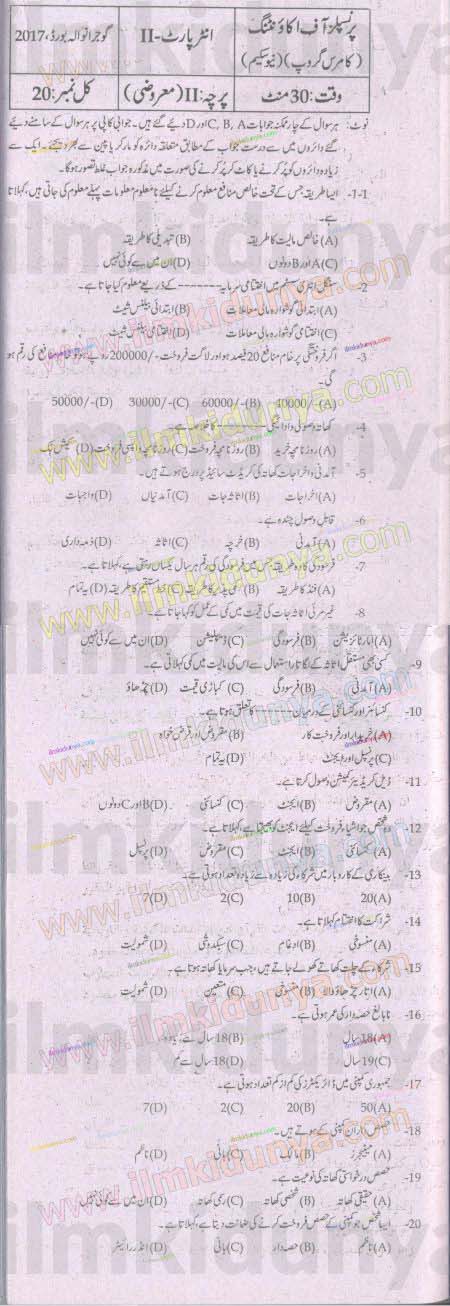 پرنسپلز آف اکاؤنٹنگ انٹر پارٹ-II گوجرانوالہ بورڈ،2017
(کامرس گروپ)(نیو سکیم)
وقت:30منٹ پرچہ:II(معروضی) کل نمبر:20
نوٹ: ہر سوال کے چار ممکنہ جوابات C, B, A اور D دیئے گئے ہیں۔ جوابی کاپی پر ہر سوال کے سامنے دیئے
گئے دائروں میں سے درست جواب کے مطابق متعلقہ دائرہ کو مارکر یا پین سے بھر دیجئے۔ ایک سے
زیادہ دائروں کو پُر کرنے یا کاٹ کر پُر کرنے کی صورت میں مذکورہ جواب غلط تصور ہوگا۔
1-1- ایسا طریقہ جس کے تحت خالص منافع معلوم کرنے کیلئے نامعلوم معلومات پہلے معلوم کی جاتی ہیں، کہلاتا
ہے۔
(A) خالص مالیت کا طریقہ (B) تبدیلی کا طریقہ
(C) A اور B دونوں (D) ان میں سے کوئی نہیں
2- سنگل انٹری سسٹم میں اختتامی سرمایہ ------- کے ذریعے معلوم کیا جاتا ہے۔
(A) ابتدائی گوشوارہ مالی معاملات (B) ابتدائی بیلنس شیٹ
(C) اختتامی گوشوارہ مالی معاملات (D) اختتامی بیلنس شیٹ
3- اگر فروختگی پر خام منافع 20 فیصد ہو اور لاگت فروخت -/200000 روپے ہو تو خام منافع کی رقم ہو
گی۔
(A) -/40000 (B) -/60000 (C) -/30000 (D) -/50000
4- کھاتہ وصولی و ادائیگی ------- کا خلاصہ ہے۔
(A) روزنامچہ خرید (B) روزنامچہ فروخت (C) روزنامچہ واپسی فروخت (D) کیش بک
5- آمدنی و اخراجات کھاتہ کی کریڈٹ سائیڈ پر درج ہوتے ہیں۔
(A) اخراجات (B) اثاثہ جات (C) آمدنیاں (D) واجبات
6- قابل وصول چندہ ہے۔
(A) آمدنی (B) خرچہ (C) اثاثہ (D) ذمہ داری
7- فرسودگی کا وہ طریقہ جس میں فرسودگی کی رقم ہر سال یکساں رہتی ہے، کہلاتا ہے۔
(A) فنڈ کا طریقہ (B) کمی پذیر کا طریقہ (C) خط مستقیم کا طریقہ (D) یہ تمام
8- غیر مرئی اثاثہ جات کی قیمت میں کمی کے عمل کو کہا جاتا ہے۔
(A) امارٹائزیشن (B) فرسودگی (C) ڈیپلیشن (D) ان میں سے کوئی نہیں
9- کسی بھی مستقل اثاثہ کے لگاتار استعمال سے اس کی مالیت میں کمی کہلاتی ہے۔
(A) آمدنی (B) فرسودگی (C) کباڑی قیمت (D) چڑھاؤ
10- کنسائنر اور کنسائنی کے درمیان کا تعلق ہوتا ہے۔
(A) خریدار اور فروخت کار (B) مقروض اور قرض خواہ
(C) پرنسپل اور ایجنٹ (D) یہ تمام
11- ڈیل کریڈیر کمیشن وصول کرتا ہے۔
(A) مقروض (B) ایجنٹ (C) کنسائنی (D) B اور C دونوں
12- وہ شخص جو اشیاء فروخت کیلئے ایجنٹ کو بھیجتا ہے کہلاتا ہے۔
(A) کنسائنی (B) ایجنٹ (C) مقروض (D) پرنسپل
13- بینکاری کے کاروبار میں شرکاء کی زیادہ سے زیادہ تعداد ہوتی ہے۔
(A) 20 (B) 10 (C) 2 (D) 7
14- شراکت کا اختتام کہلاتا ہے۔
(A) منسوخی (B) ادغام (C) سبکدوشی (D) شمولیت
15- شرکاء کے چلت کھاتے کھولے جاتے ہیں، جب سرمایا کھاتہ ہوتا ہے۔
(A) اتار چڑھاؤ والا (B) منسوخی (C) متعین (D) شمولیت
16- نابالغ حصہ دار کی عمر ہوتی ہے۔
(A) 18 سال (B) 18 سال سے زیادہ
(C) 19 سال (D) 18 سال سے کم
17- جمہوری کمپنی میں ڈائریکٹرز کی کم از کم تعداد ہوتی ہے۔
(A) 50 (B) 20 (C) 2 (D) 7
18- حصص داران کمپنی کے ہوتے ہیں۔
(A) مینیجرز (B) مالک (C) بانی (D) ناظم
19- حصص درخواستی کھاتہ کی نوعیت ہے۔
(A) حقیقی کھاتہ (B) شخصی کھاتہ (C) رسمی کھاتہ (D) ان میں سے کوئی نہیں
20- ایسا شخص جو کمپنی کے حصص فروخت کرنے کی ضمانت دیتا ہے، کہلاتا ہے۔
(A) ناظم (B) حصہ دار (C) بانی (D) انڈر رائیٹر
www.ilmkidunya.com